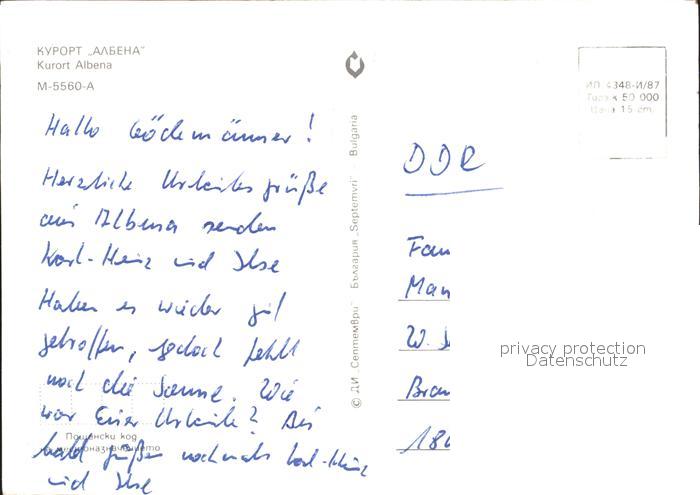 КУРОРТ „АЛБЕНА"
Kurort Albena
М-5560-А
ИП 4348-И/87
Тираж 50 000
Цена 15 ст.
Hallo
Herzliche Urlaubsgrüße
aus Albena senden
Karl-Heinz und Ilse
Haben es wieder gut
getroffen, jedoch fehlt
noch die Sonne. Wie
war Euer Urlaub? Bis
bald grüßen nochmals Karl-Heinz
und Ilse
Пощенски код
на местоназначението
© ДИ „Септември" България „Septemvri" Bulgaria
DDR
Fam
Man
W. S
Bran
180
privacy protection
Datenschutz